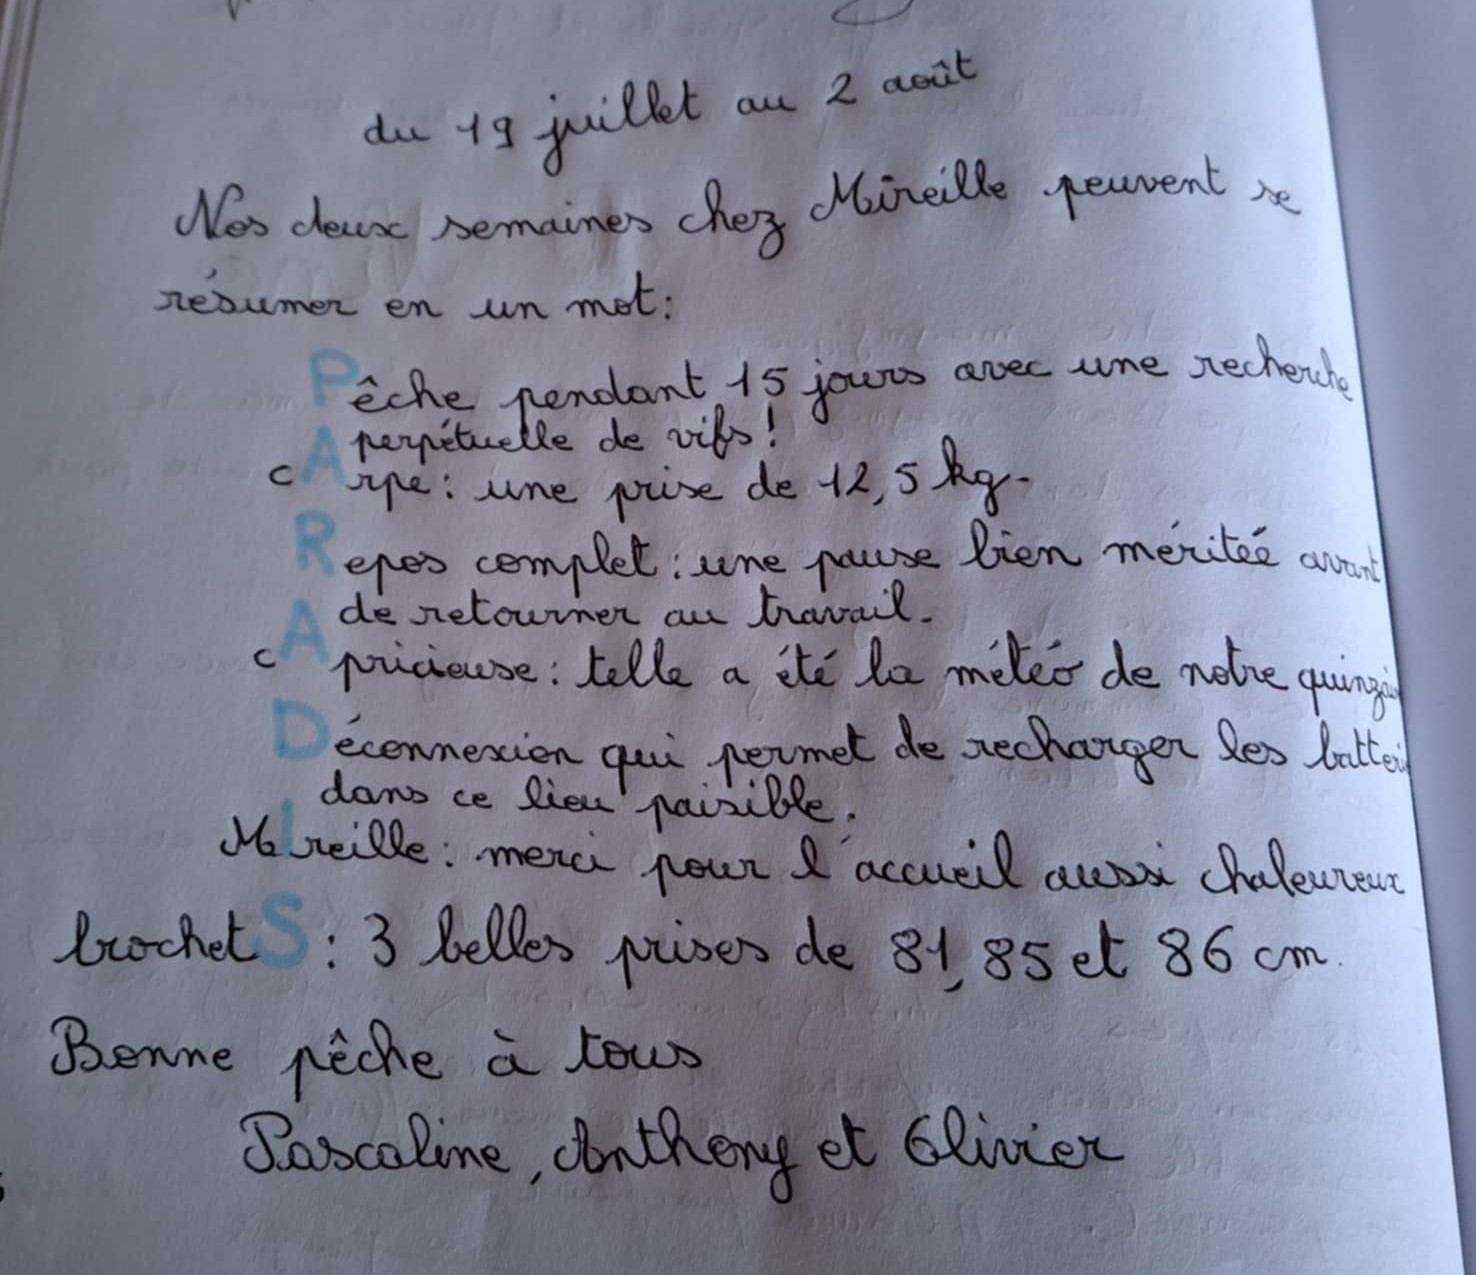 du 19 juillet au 2 août
Nos deux semaines chez Mireille peuvent se
résumer en un mot:
Pêche pendant 15 jours avec une recherche
perpétuelle de vifs!
cArpe: une prise de 12,5 kg.
Repos complet: une pause bien méritée avant
de retourner au travail.
cApricieuse: telle a été la météo de notre quinzai
Déconnexion qui permet de recharger les batteri
dans ce lieu paisible.
MIreille: merci pour l'accueil aussi chaleureux
brochetS: 3 belles prises de 81, 85 et 86 cm.
Bonne pêche à tous
Pascaline, Anthony et Olivier